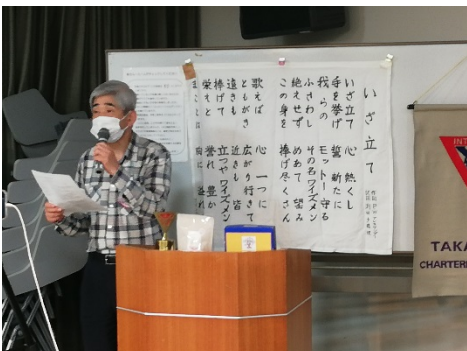 いざ立て
いざ立て 心熱くし
手を挙げ 誓新たに
我らの モットー守る
ふさわし その名ワイズメン
絶えせず めあて望み
この身を 捧げ尽くさん
歌えば 心一つに
ともがき 広がり行きて
遠きも 近きも皆
捧げて 立つやワイズメン
栄えと 誉れ豊か
胸に
INT
TAKA
CHARTERE